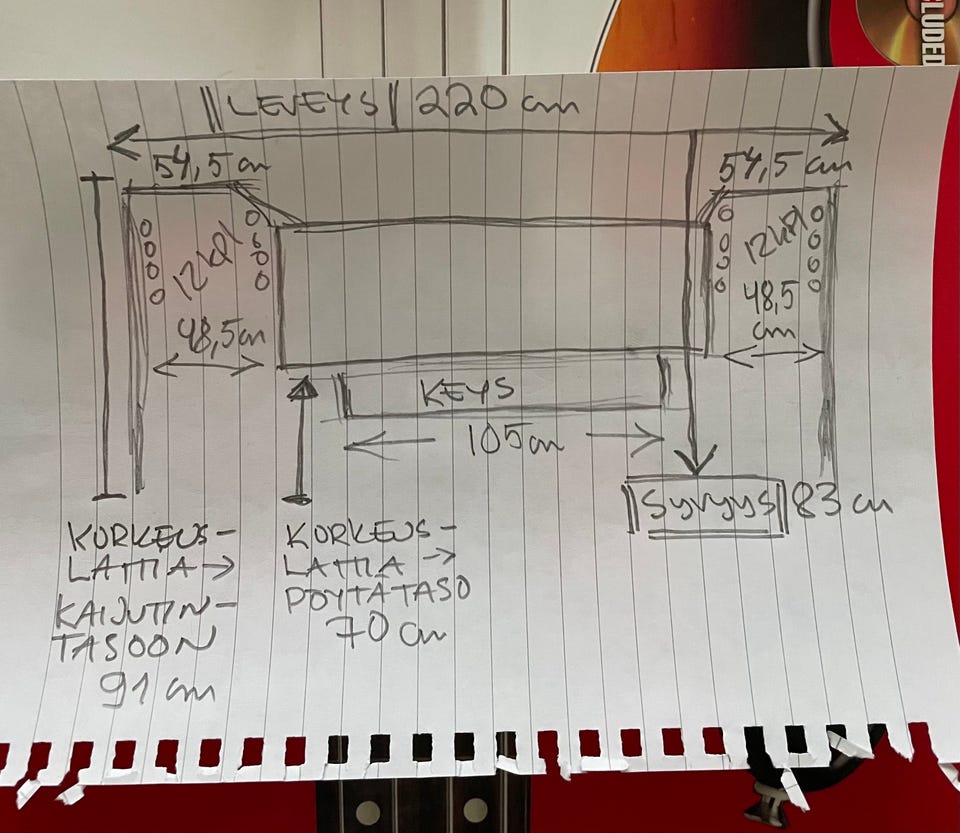 CLUDED
LEVEYS 220 cm
54,5 cm
54,5 cm
12 kpl
12 kpl
48,5 cm
48,5
cm
KEYS
105 cm
SYVYYS 83 cm
KORKEUS-
LATTIA →
KAIJUTIN-
TASOON
91 cm
KORKEUS-
LATTIA →
PÖYTÄTASO
70 cm